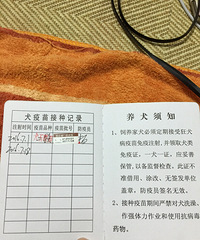 犬疫苗接种记录
注射时间 疫苗品种 疫苗批号 防疫员
养犬须知
1、饲养家犬必须定期接受狂犬
病疫苗免疫注射,并领取犬类
免疫证,一犬一证,应妥善
保管,以备监督检查。此证不
准借用、涂改、无签发单位
盖章,防疫员签名无效。
2、接种疫苗期间严禁对犬洗澡、
作强体力作业和使用抗病毒
药物。